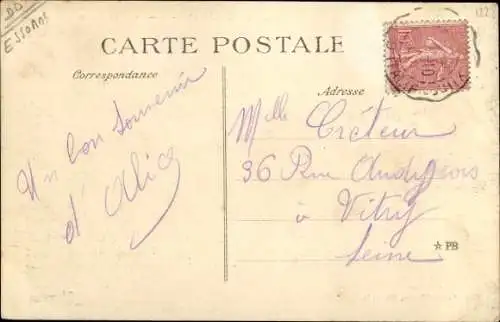 ESSONNES
CARTE POSTALE
Correspondance
Adresse
Un bon souvenir
d'Alice
Mlle Créteur
36 Rue
à Vitry
Seine
☆ PB